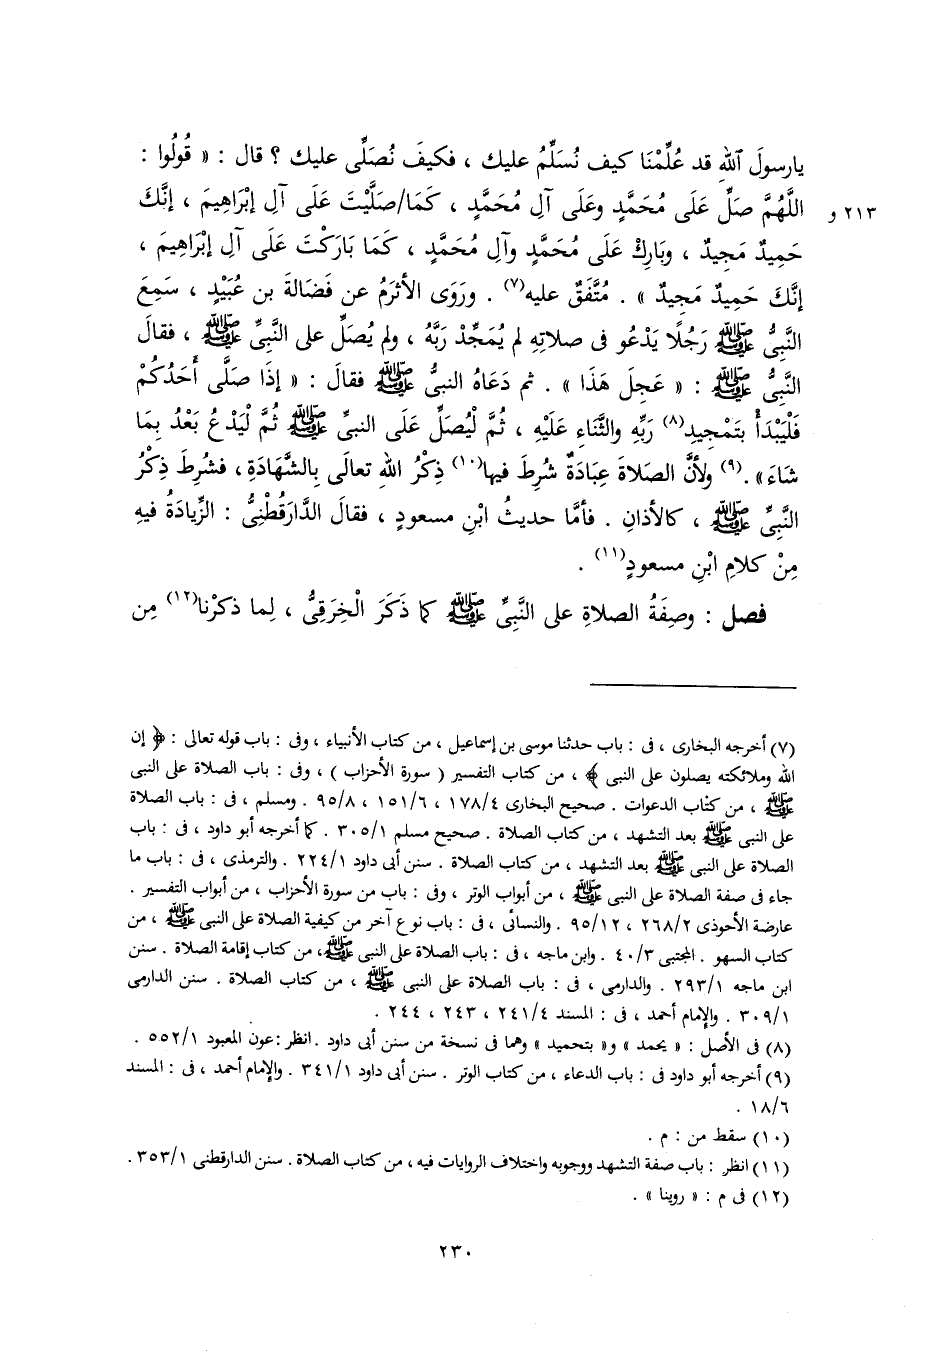 يارسولَ ٱللهِ قد عُلِّمْنَا كيف نُسَلِّمُ عليك ، فكيفَ نُصَلِّى عليك ؟ قال : « قُولُوا :
اللَّهُمَّ صَلِّ عَلَى مُحَمَّدٍ وعَلَى آلِ مُحَمَّدٍ ، كَمَا/صَلَّيْتَ عَلَى آلِ إبْرَاهِيمَ ، إنَّكَ
٢١٣ و
حَمِيدٌ مَجِيدٌ ، وبَارِكْ عَلَى مُحَمَّدٍ وآلِ مُحَمَّدٍ ، كَمَا بَارَكْتَ عَلَى آلِ إبْرَاهِيمَ ،
إنَّكَ حَمِيدٌ مَجِيدٌ » . مُتَّفَقٌ عليه(٧) . ورَوَى الأثرَمُ عن فَضَالةَ بن عُبَيْدٍ ، سَمِعَ
النَّبِىُّ ﷺ رَجُلًا يَدْعُو فى صلاتِهِ لم يُمَجِّدْ رَبَّهُ ، ولم يُصَلِّ على النَّبِىِّ ﷺ ، فقالَ
النَّبِىُّ ﷺ : « عَجِلَ هَذَا » . ثم دَعَاهُ النبىُّ ﷺ فقالَ : « إذَا صَلَّى أَحَدُكُمْ
فَلْيَبْدَأْ بتَمْجِيدِ(٨) رَبِّهِ والثَّنَاءِ عَلَيْهِ ، ثُمَّ لْيُصَلِّ عَلَى النبىِّ ﷺ ثُمَّ لْيَدْعُ بَعْدُ بِمَا
شَاءَ» .(٩) ولأنَّ الصلاةَ عِبَادَةٌ شُرِطَ فيها(١٠) ذِكْرُ اللهِ تعالَى بِالشَّهَادَةِ ، فشُرِطَ ذِكْرُ
النَّبِىِّ ﷺ ، كالأذانِ . فأمَّا حديثُ ابْنِ مسعودٍ ، فقالَ الدَّارَقُطْنِىُّ : الزِّيادَةُ فيهِ
مِنْ كلامِ ابْنِ مسعودٍ(١١) .
فصل : وصِفَةُ الصلاةِ على النَّبِىِّ ﷺ كما ذَكَرَ الْخِرَقِىُّ ، لِما ذكرْنا(١٢) مِن
(٧) أخرجه البخارى ، فى : باب حدثنا موسى بن إسماعيل ، من كتاب الأنبياء ، وفى : باب قوله تعالى : ﴿ إن
الله وملائكته يصلون على النبى ﴾ ، من كتاب التفسير ( سورة الأحزاب ) ، وفى : باب الصلاة على النبى
ﷺ ، من كتاب الدعوات . صحيح البخارى ١٧٨/٤ ، ١٥١/٦ ، ٩٥/٨ . ومسلم ، فى : باب الصلاة
على النبى ﷺ بعد التشهد ، من كتاب الصلاة . صحيح مسلم ٣٠٥/١ . كما أخرجه أبو داود ، فى : باب
الصلاة على النبى ﷺ بعد التشهد ، من كتاب الصلاة . سنن أبى داود ٢٢٤/١ . والترمذى ، فى : باب ما
جاء فى صفة الصلاة على النبى ﷺ ، من أبواب الوتر ، وفى : باب من سورة الأحزاب ، من أبواب التفسير .
عارضة الأحوذى ٢٦٨/٢ ، ٩٥/١٢ . والنسائى ، فى : باب نوع آخر من كيفية الصلاة على النبى ﷺ ، من
كتاب السهو . المجتبى ٤٠/٣ . وابن ماجه ، فى : باب الصلاة على النبى ﷺ، من كتاب إقامة الصلاة . سنن
ابن ماجه ٢٩٣/١ . والدارمى ، فى : باب الصلاة على النبى ﷺ ، من كتاب الصلاة . سنن الدارمى
٣٠٩/١ . والإمام أحمد ، فى : المسند ٢٤١/٤ ، ٢٤٣ ، ٢٤٤ .
(٨) فى الأصل : « يحمد » و« بتحميد » وهما فى نسخة من سنن أبى داود . انظر : عون المعبود ٥٥٢/١ .
(٩) أخرجه أبو داود فى : باب الدعاء ، من كتاب الوتر . سنن أبى داود ٣٤١/١ . والإمام أحمد ، فى : المسند
١٨/٦ .
(١٠) سقط من : م .
(١١) انظر : باب صفة التشهد ووجوبه واختلاف الروايات فيه ، من كتاب الصلاة . سنن الدارقطنى ٣٥٣/١ .
(١٢) فى م : « روينا » .
٢٣٠